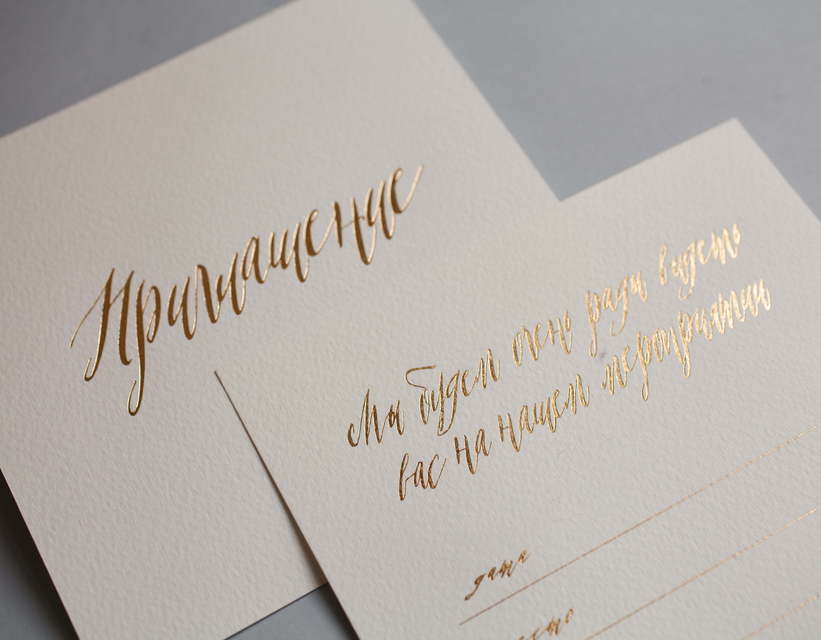 Приглашение
Мы будем очень рады видеть
вас на нашем мероприятии
дата
место